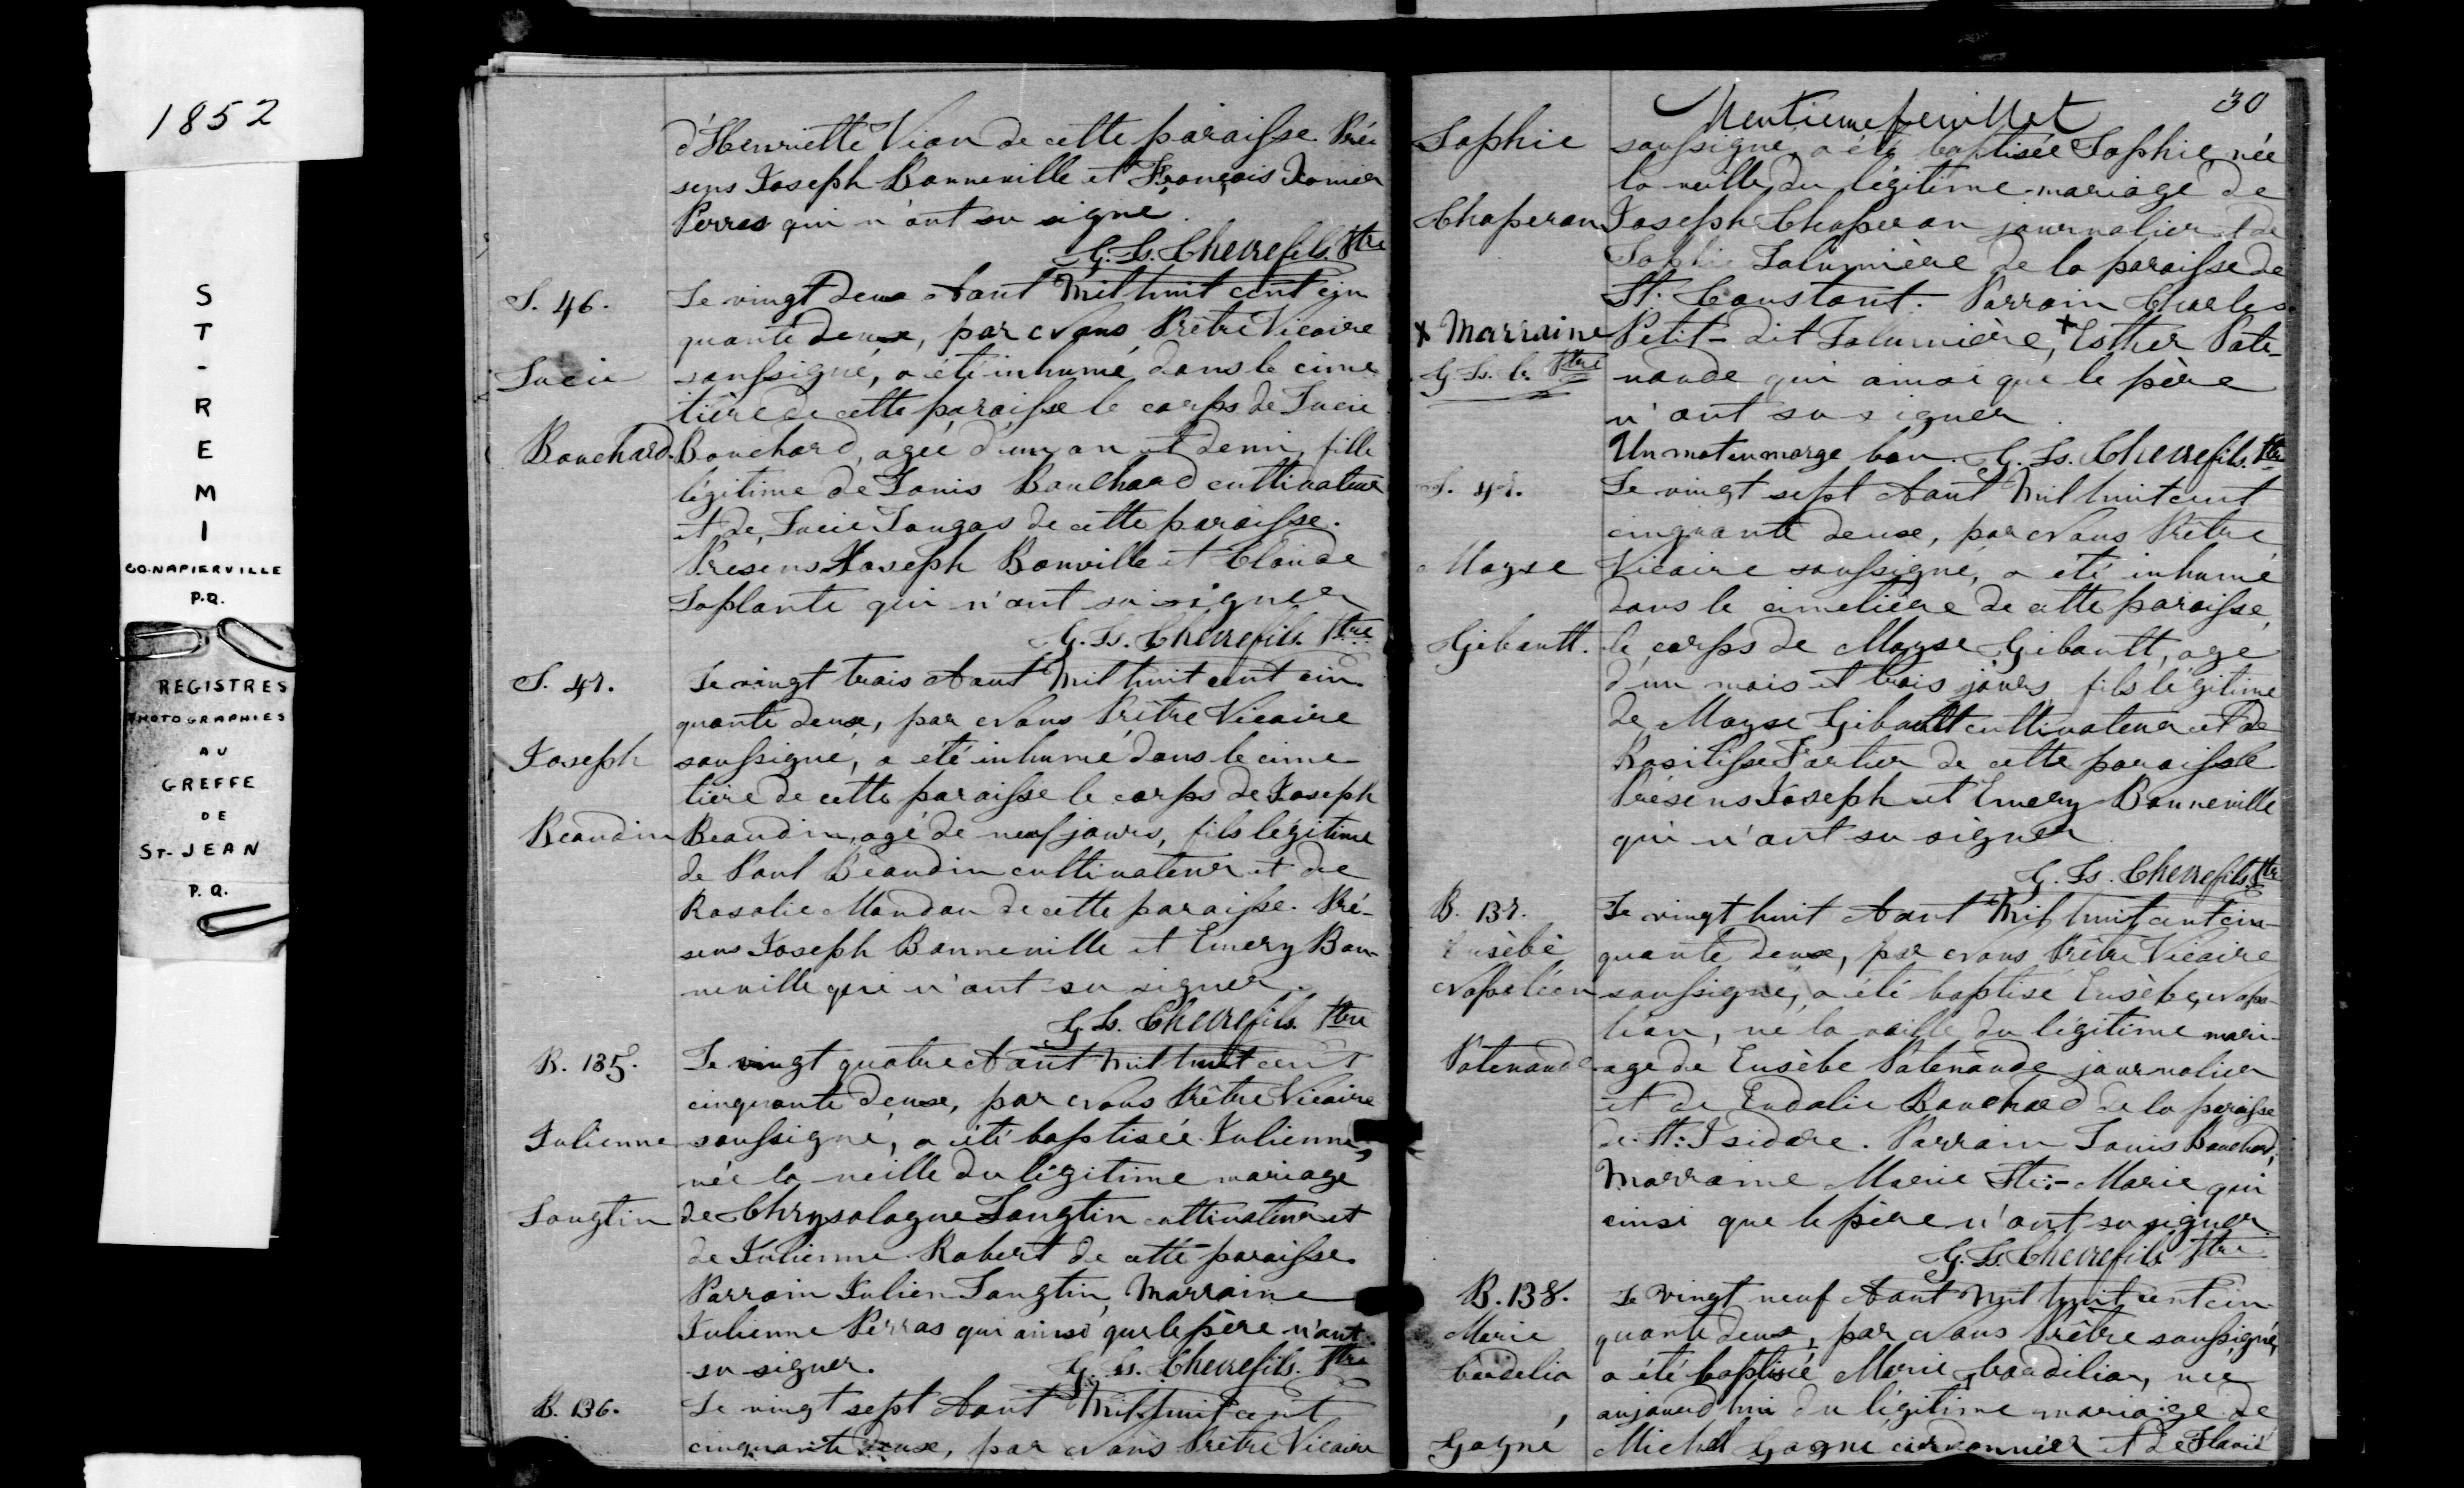 1852
ST-REMI
CO. NAPIERVILLE
P.Q.
REGISTRES
PHOTOGRAPHIES
AU
GREFFE
DE
ST-JEAN
P.Q.
d'Henriette Vian de cette paroisse. Pré
sens Joseph Bonneville et François Xavier
Perras qui n'ont su signé.
G. Ls. Chevrefils. Ptre
S. 46.
Lucie
Bouchard
Le vingt deux Aout Mil huit cent cin
quante deux, par Nous Prêtre Vicaire
soussigné, a été inhumé dans le cime
tière de cette paroisse le corps de Lucie
Bouchard, agée d'un an et demi, fille
légitime de Louis Bouchard cultivateur
et de Lucie Dugas de cette paroisse.
Présens Joseph Bonville et Claude
Laplante qui n'ont su signer
G. Ls. Chevrefils. Ptre
S. 47.
Joseph
Beaudin
Le vingt trois Aout Mil huit cent cin
quante deux, par Nous Prêtre Vicaire
soussigné, a été inhumé dans le cime
tière de cette paroisse le corps de Joseph
Beaudin, agé de neuf jours, fils légitime
de Paul Beaudin cultivateur et de
Rosalie Mandou de cette paroisse. Pré-
sens Joseph Bonneville et Emery Bon-
neville qui n'ont su signer.
G. Ls. Chevrefils. Ptre
B. 135.
Julienne
Langtin
Le vingt quatre Aout Mil huit cent
cinquante deux, par Nous Prêtre Vicaire
soussigné, a été baptisée Julienne,
née la veille du légitime mariage
de Chrysologue Langtin cultivateur et
de Julienne Robert de cette paroisse.
Parrain Julien Langtin, Marraine
Julienne Perras qui ainsi que le père n'ont
su signer. G. Ls. Chevrefils. Ptre
B. 136.
Le vingt sept Aout Mil huit cent
cinquante deux, par Nous Prêtre Vicaire
Trentieme feuillet 30
Sophie
Chaperon
soussigné, a été baptisée Sophie, née
la veille du légitime mariage de
Joseph Chaperon journalier et de
Sophie Lalumière de la paroisse de
St. Constant. Parrain Charles
Petit-dit Lalumière, + Esther Pate-
naude qui ainsi que le père
n'ont su signer
+ Marraine
G. Ls. C. Ptre
Un mot en marge bon. G. Ls. Chevrefils. Ptre
S. 48.
Moyse
Gibault.
Le vingt sept Aout Mil huit cent
cinquante deux, par Nous Prêtre
Vicaire soussigné, a été inhumé
dans le cimetière de cette paroisse,
le corps de Moyse Gibault, age
d'un mois et trois jours fils légitime
de Moyse Gibault cultivateur et de
Basilisse Fortier de cette paroisse
Présens Joseph et Emery Bonneville
qui n'ont su signer
G. Ls. Chevrefils. Ptre
B. 137.
Eusèbe
Napoléon
Patenaude
Le vingt huit Aout Mil huit cent cin-
quante deux, par Nous Prêtre Vicaire
soussigné, a été baptisé Eusèbe, Napo-
léon, né la veille du légitime mari-
age de Eusèbe Patenaude journalier
et de Eudalie Bouchard de la paroisse
de St: Isidore. Parrain Louis Bouchard,
Marraine Marie Ste:-Marie qui
ainsi que le père n'ont su signer
G. Ls. Chevrefils Ptre
B. 138.
Marie
Gagne
Le vingt neuf Aout Mil huit cent cin-
quante deux, par Nous Prêtre soussigné,
a été baptisée Marie, née
aujourd'hui du légitime mariage de
Michel Gagne cordonnier et de Flavie